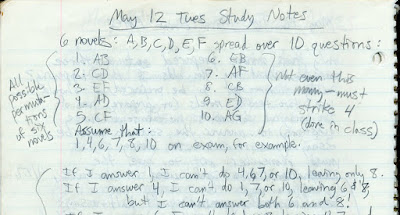 May 12 Tues Study Notes
6 novels: A,B,C,D,E,F spread over 10 questions:
All possible permutations of six novels
1. AB 6. EB
2. CD 7. AF
3. EF 8. CB
4. AD 9. ED
5. CF 10. AG
not even this many—must strike 4 (done in class)
Assume that:
1,4,6,7,8,10 on exam, for example.
If I answer 1, I can't do 4,6,7, or 10, leaving only 8.
If I answer 4, I can't do 1, 7, or 10, leaving 6 & 8,
but I can't answer both 6 and 8!